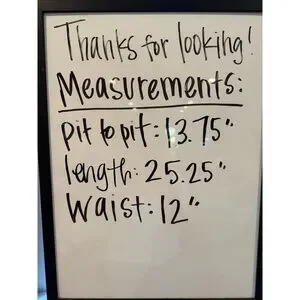 Thanks for looking!
Measurements:
pit to pit: 13.75"
length: 25.25"
Waist: 12"